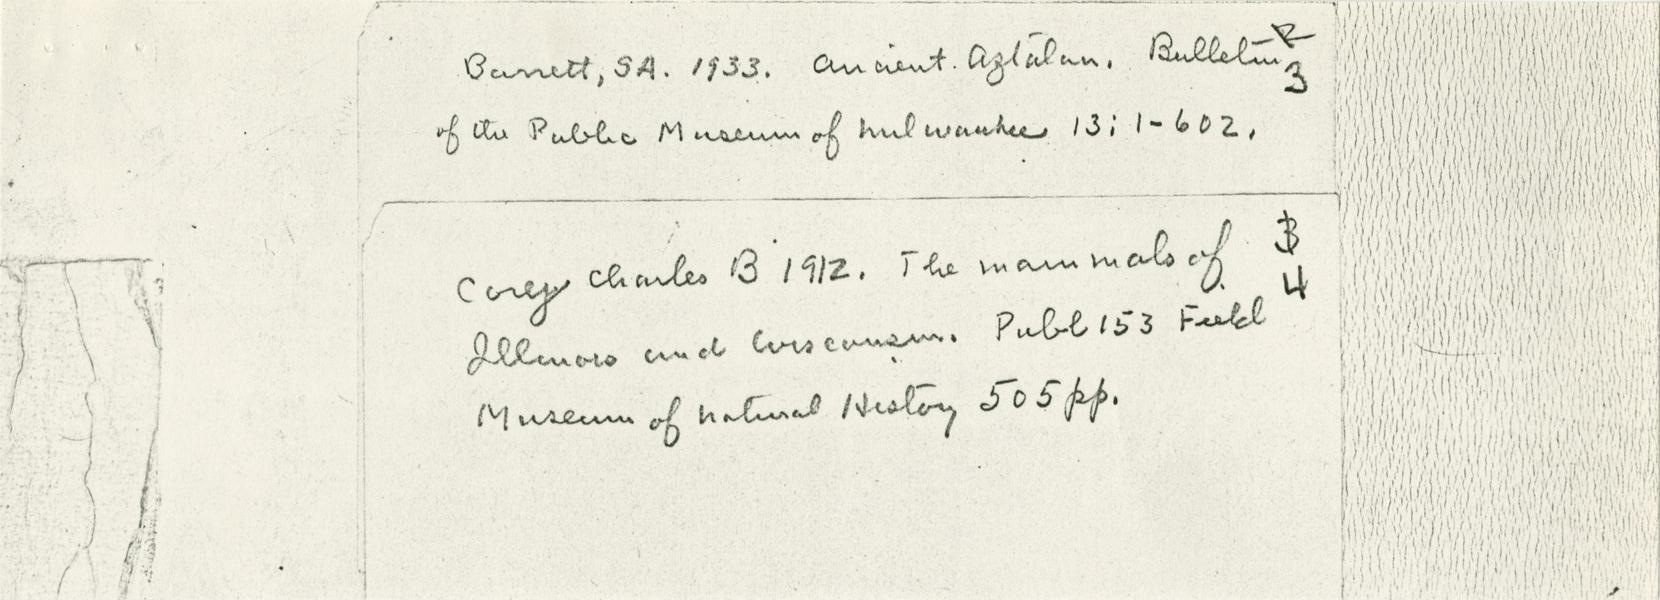 Barrett, SA. 1933. Ancient Aztalan. Bulletin
3
of the Public Museum of Milwaukee 13: 1-602.
3
4
Corey Charles B 1912. The mammals of
Illinois and Wisconsin. Publ 153 Field
Museum of Natural History 505 pp.